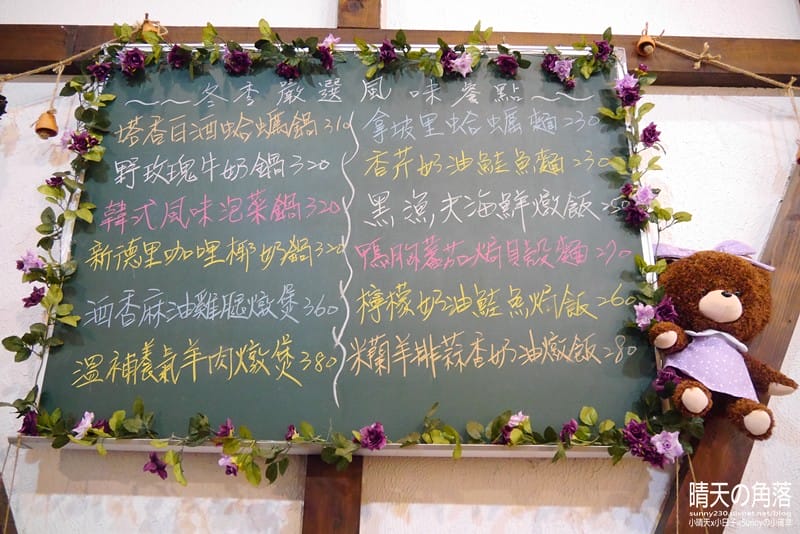 ~~冬季嚴選風味餐點~~
塔香白酒蛤蠣鍋310
野玫瑰牛奶鍋320
韓式風味泡菜鍋320
新德里咖哩椰奶鍋320
酒香麻油雞腿燉煲360
溫補養氣羊肉燉煲380
拿坡里蛤蠣麵230
香芹奶油鮭魚麵230
黑漁夫海鮮燉飯250
鴨胸蕃茄焗貝殼麵270
檸檬奶油鮭魚焗飯260
米蘭羊排蒜香奶油燉飯280
晴天の角落
sunny230.pixnet.net/blog
小晴天x小日子xSunnyの小確幸